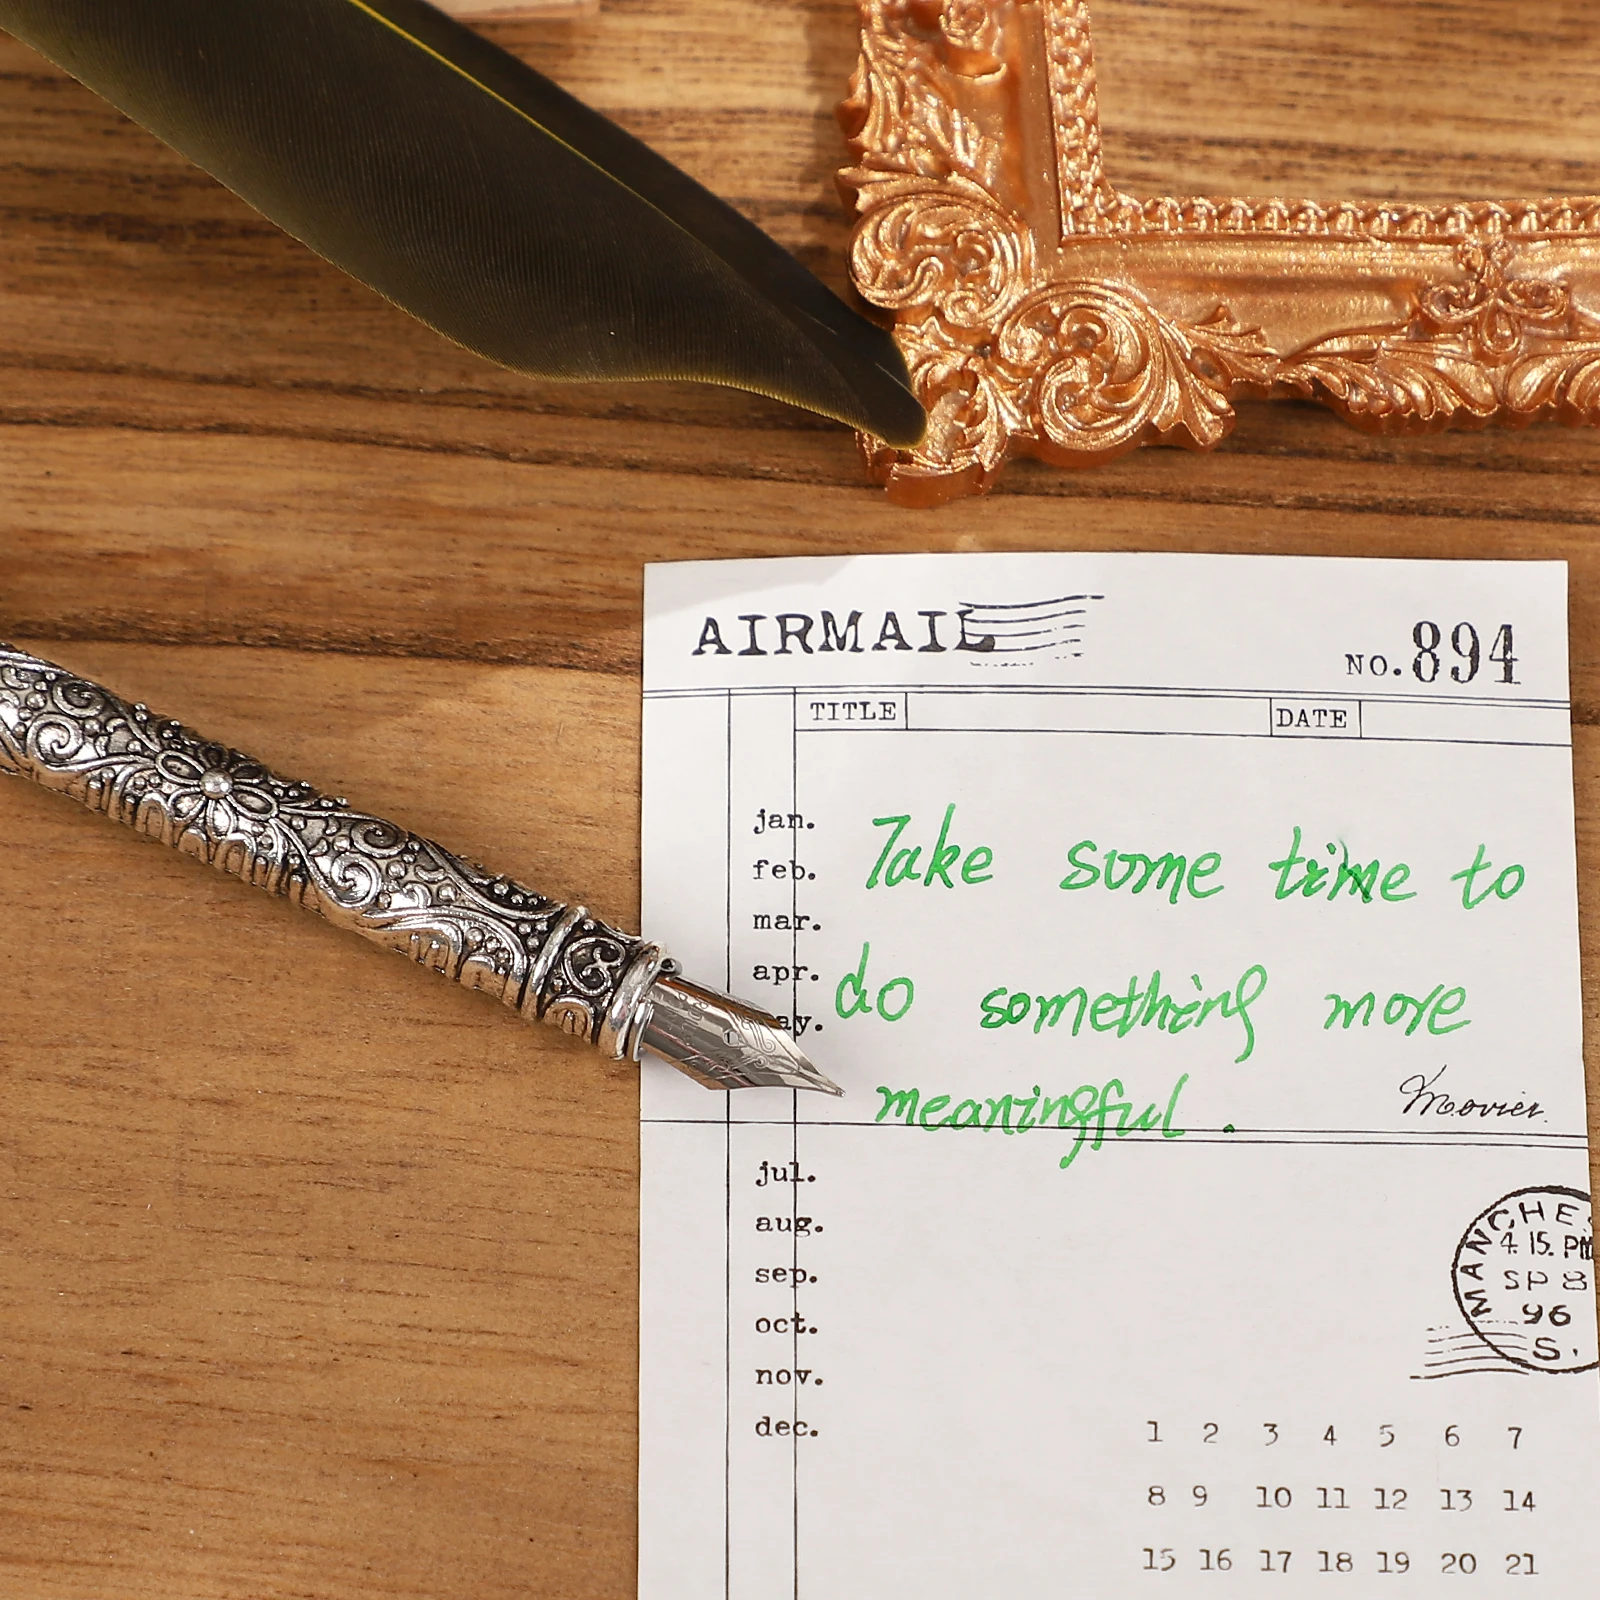 AIRMAIL
NO.894
TITLE DATE
jan.
feb.
mar.
apr.
ay.
Take some time to
do something more
meaningful.
Movier.
jul.
aug.
sep.
oct.
nov.
dec.
MANCHES
4. 15. PM
SP 8
96
S.
1 2 3 4 5 6 7
8 9 10 11 12 13 14
15 16 17 18 19 20 21